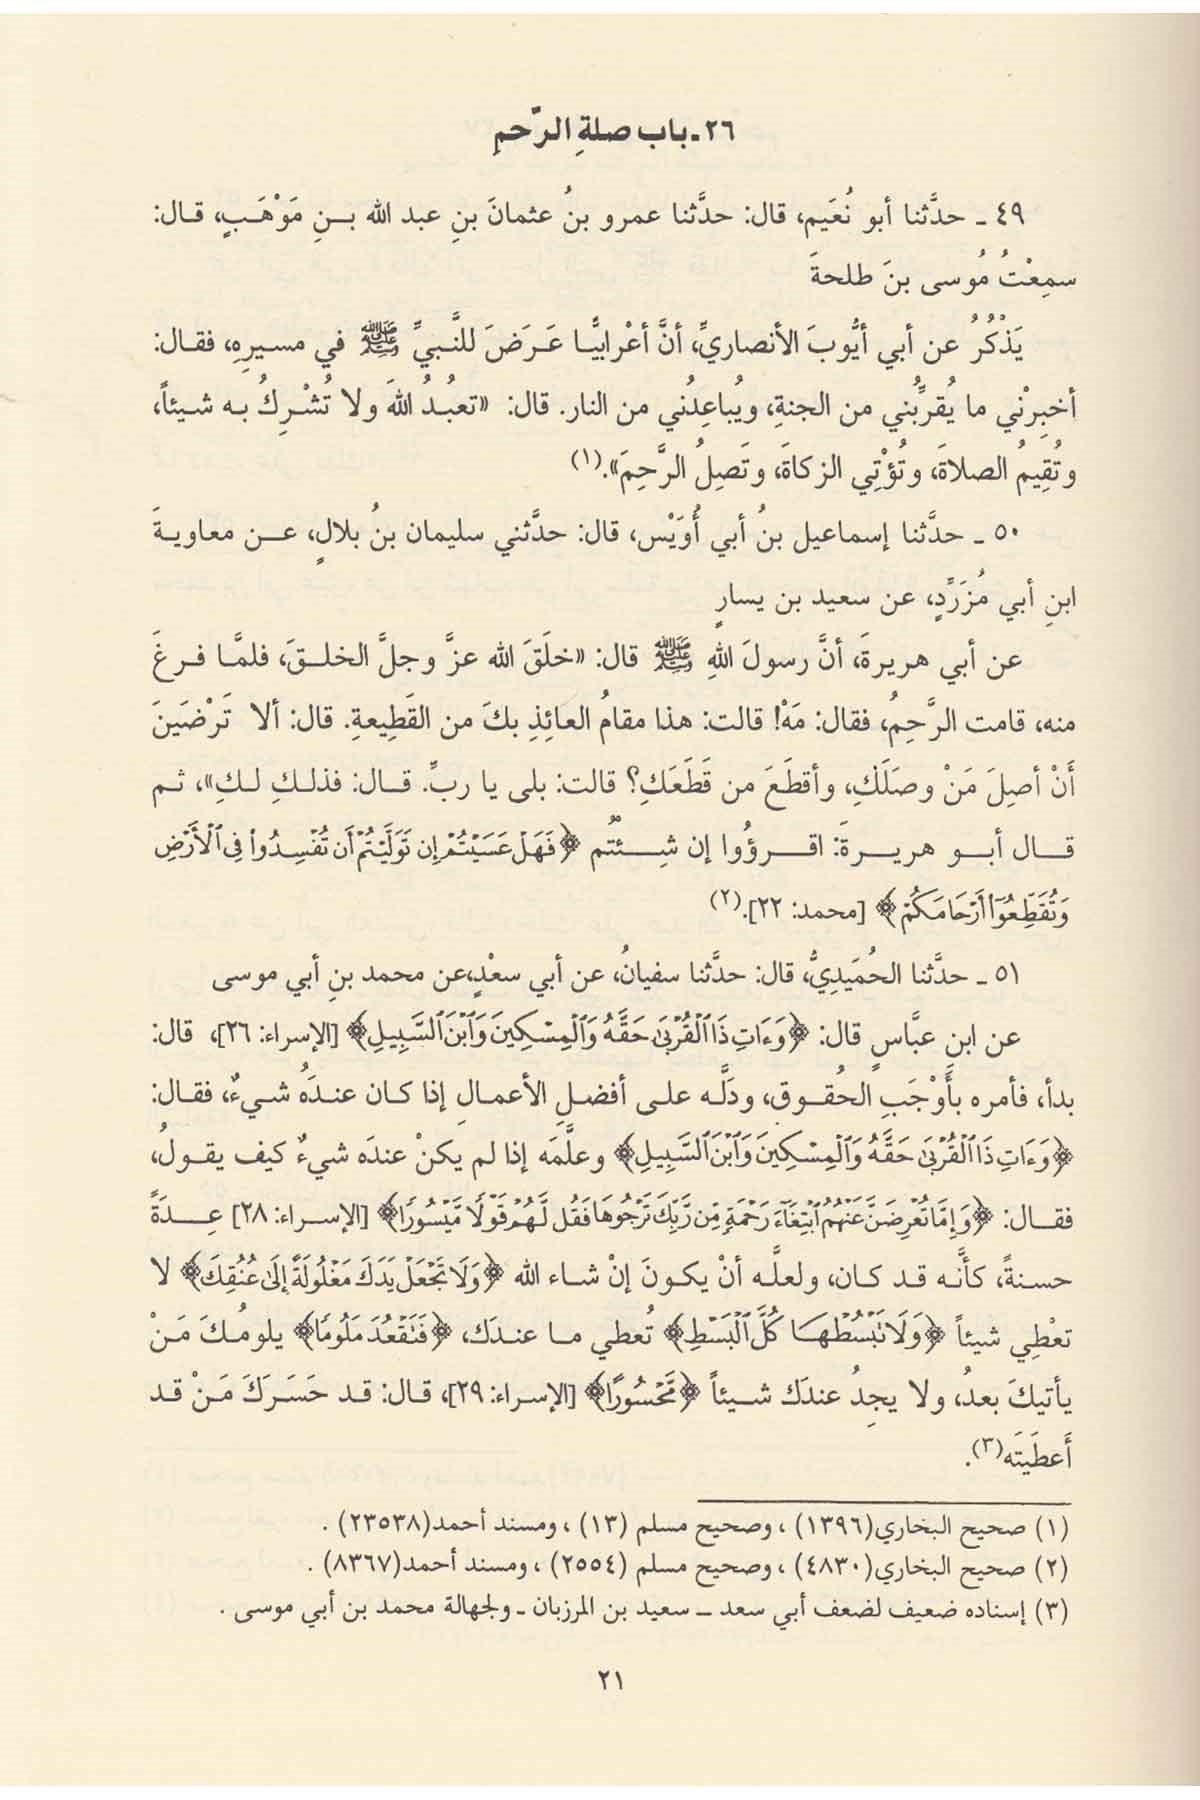 ٢٦ـ باب صلةِ الرَّحمِ
٤٩ ـ حدَّثنا أبو نُعَيم، قال: حدَّثنا عمرو بنُ عثمانَ بنِ عبد الله بـنِ مَوْهَبٍ، قال:
سمِعْتُ مُوسى بنَ طلحةَ
يَذْكُرُ عن أبي أيُّوبَ الأنصاريِّ، أنَّ أعْرابيًّا عَرَضَ للنَّبيِّ ﷺ في مسيرِهِ، فقال:
أخبِرْني ما يُقرِّبُني من الجنةِ، ويُباعِدُني من النار. قال: «تعبُدُ اللهَ ولا تُشْرِكُ به شيئاً،
وتُقِيمُ الصلاةَ، وتُؤْتِي الزكاةَ، وتَصِلُ الرَّحِمَ».(١)
٥٠ ـ حدَّثنا إسماعيل بنُ أبي أُوَيْس، قال: حدَّثني سليمان بنُ بلالٍ، عـن معاويةَ
ابنِ أبي مُزَرِّدٍ، عن سعيد بن يسارٍ
عن أبي هريرةَ، أنَّ رسولَ اللهِ ﷺ قال: «خلَقَ الله عزَّ وجلَّ الخلـقَ، فلمَّا فـرغَ
منه، قامت الرَّحِمُ، فقال: مَهْ! قالت: هذا مقامُ العائِذِ بكَ من القَطِيعةِ. قال: ألا تَرْضَينَ
أنْ أصِلَ مَنْ وصَلَكِ، وأقطَعَ من قَطَعَكِ؟ قالت: بلى يا ربِّ. قـال: فذلـكِ لـكِ»، ثـم
قـال أبـو هريـرةَ: اقـرؤُوا إن شِـئتُم ﴿فَهَلْ عَسَيْتُمْ إِن تَوَلَّيْتُمْ أَن تُفْسِدُوا۟ فِى ٱلْأَرْضِ
وَتُقَطِّعُوٓا۟ أَرْحَامَكُمْ﴾ [محمد: ٢٢].(٢)
٥١ ـ حدَّثنا الحُمَيدِيُّ، قال: حدَّثنا سفيانُ، عن أبي سعْدٍ،عن محمد بنِ أبي موسى
عن ابنِ عبَّاسٍ قال: ﴿وَءَاتِ ذَا ٱلْقُرْبَىٰ حَقَّهُۥ وَٱلْمِسْكِينَ وَٱبْنَ ٱلسَّبِيلِ﴾ [الإسراء: ٢٦]، قال:
بدأ، فأمره بأَوْجَبِ الحُقـوق، ودَلَّـه علـى أفضـلِ الأعمـالِ إذا كـان عنـدَهُ شيءٌ، فقـال:
﴿وَءَاتِ ذَا ٱلْقُرْبَىٰ حَقَّهُۥ وَٱلْمِسْكِينَ وَٱبْنَ ٱلسَّبِيلِ﴾ وعلَّمَه إذا لم يكنْ عندَه شيءٌ كيف يقولُ،
فقـال: ﴿وَإِمَّا تُعْرِضَنَّ عَنْهُمُ ٱبْتِغَآءَ رَحْمَةٍ مِّن رَّبِّكَ تَرْجُوهَا فَقُل لَّهُمْ قَوْلًا مَّيْسُورًا﴾ [الإسراء: ٢٨] عِـدَةً
حسنةً، كأنَّه قد كان، ولعلَّه أنْ يكونَ إنْ شاء الله ﴿وَلَا تَجْعَلْ يَدَكَ مَغْلُولَةً إِلَىٰ عُنُقِكَ﴾ لا
تعْطِي شيئاً ﴿وَلَا تَبْسُطْهَا كُلَّ ٱلْبَسْطِ﴾ تُعطي ما عنـدَك، ﴿فَتَقْعُدَ مَلُومًا﴾ يلومُـكَ مَـنْ
يأتيكَ بعدُ، ولا يجِدُ عندَك شيئاً ﴿مَّحْسُورًا﴾ [الإسراء: ٢٩]، قال: قد حَسَرَكَ مَنْ قد
أَعطَيتَه(٣).
(١) صحيح البخاري(١٣٩٦) ، وصحيح مسلم (١٣) ، ومسند أحمد(٢٣٥٣٨) .
(٢) صحيح البخاري(٤٨٣٠) ، وصحيح مسلم (٢٥٥٤) ، ومسند أحمد(٨٣٦٧) .
(٣) إسناده ضعيف لضعف أبي سعد ــ سعيد بن المرزبان ـ ولجهالة محمد بن أبي موسى .
٢١